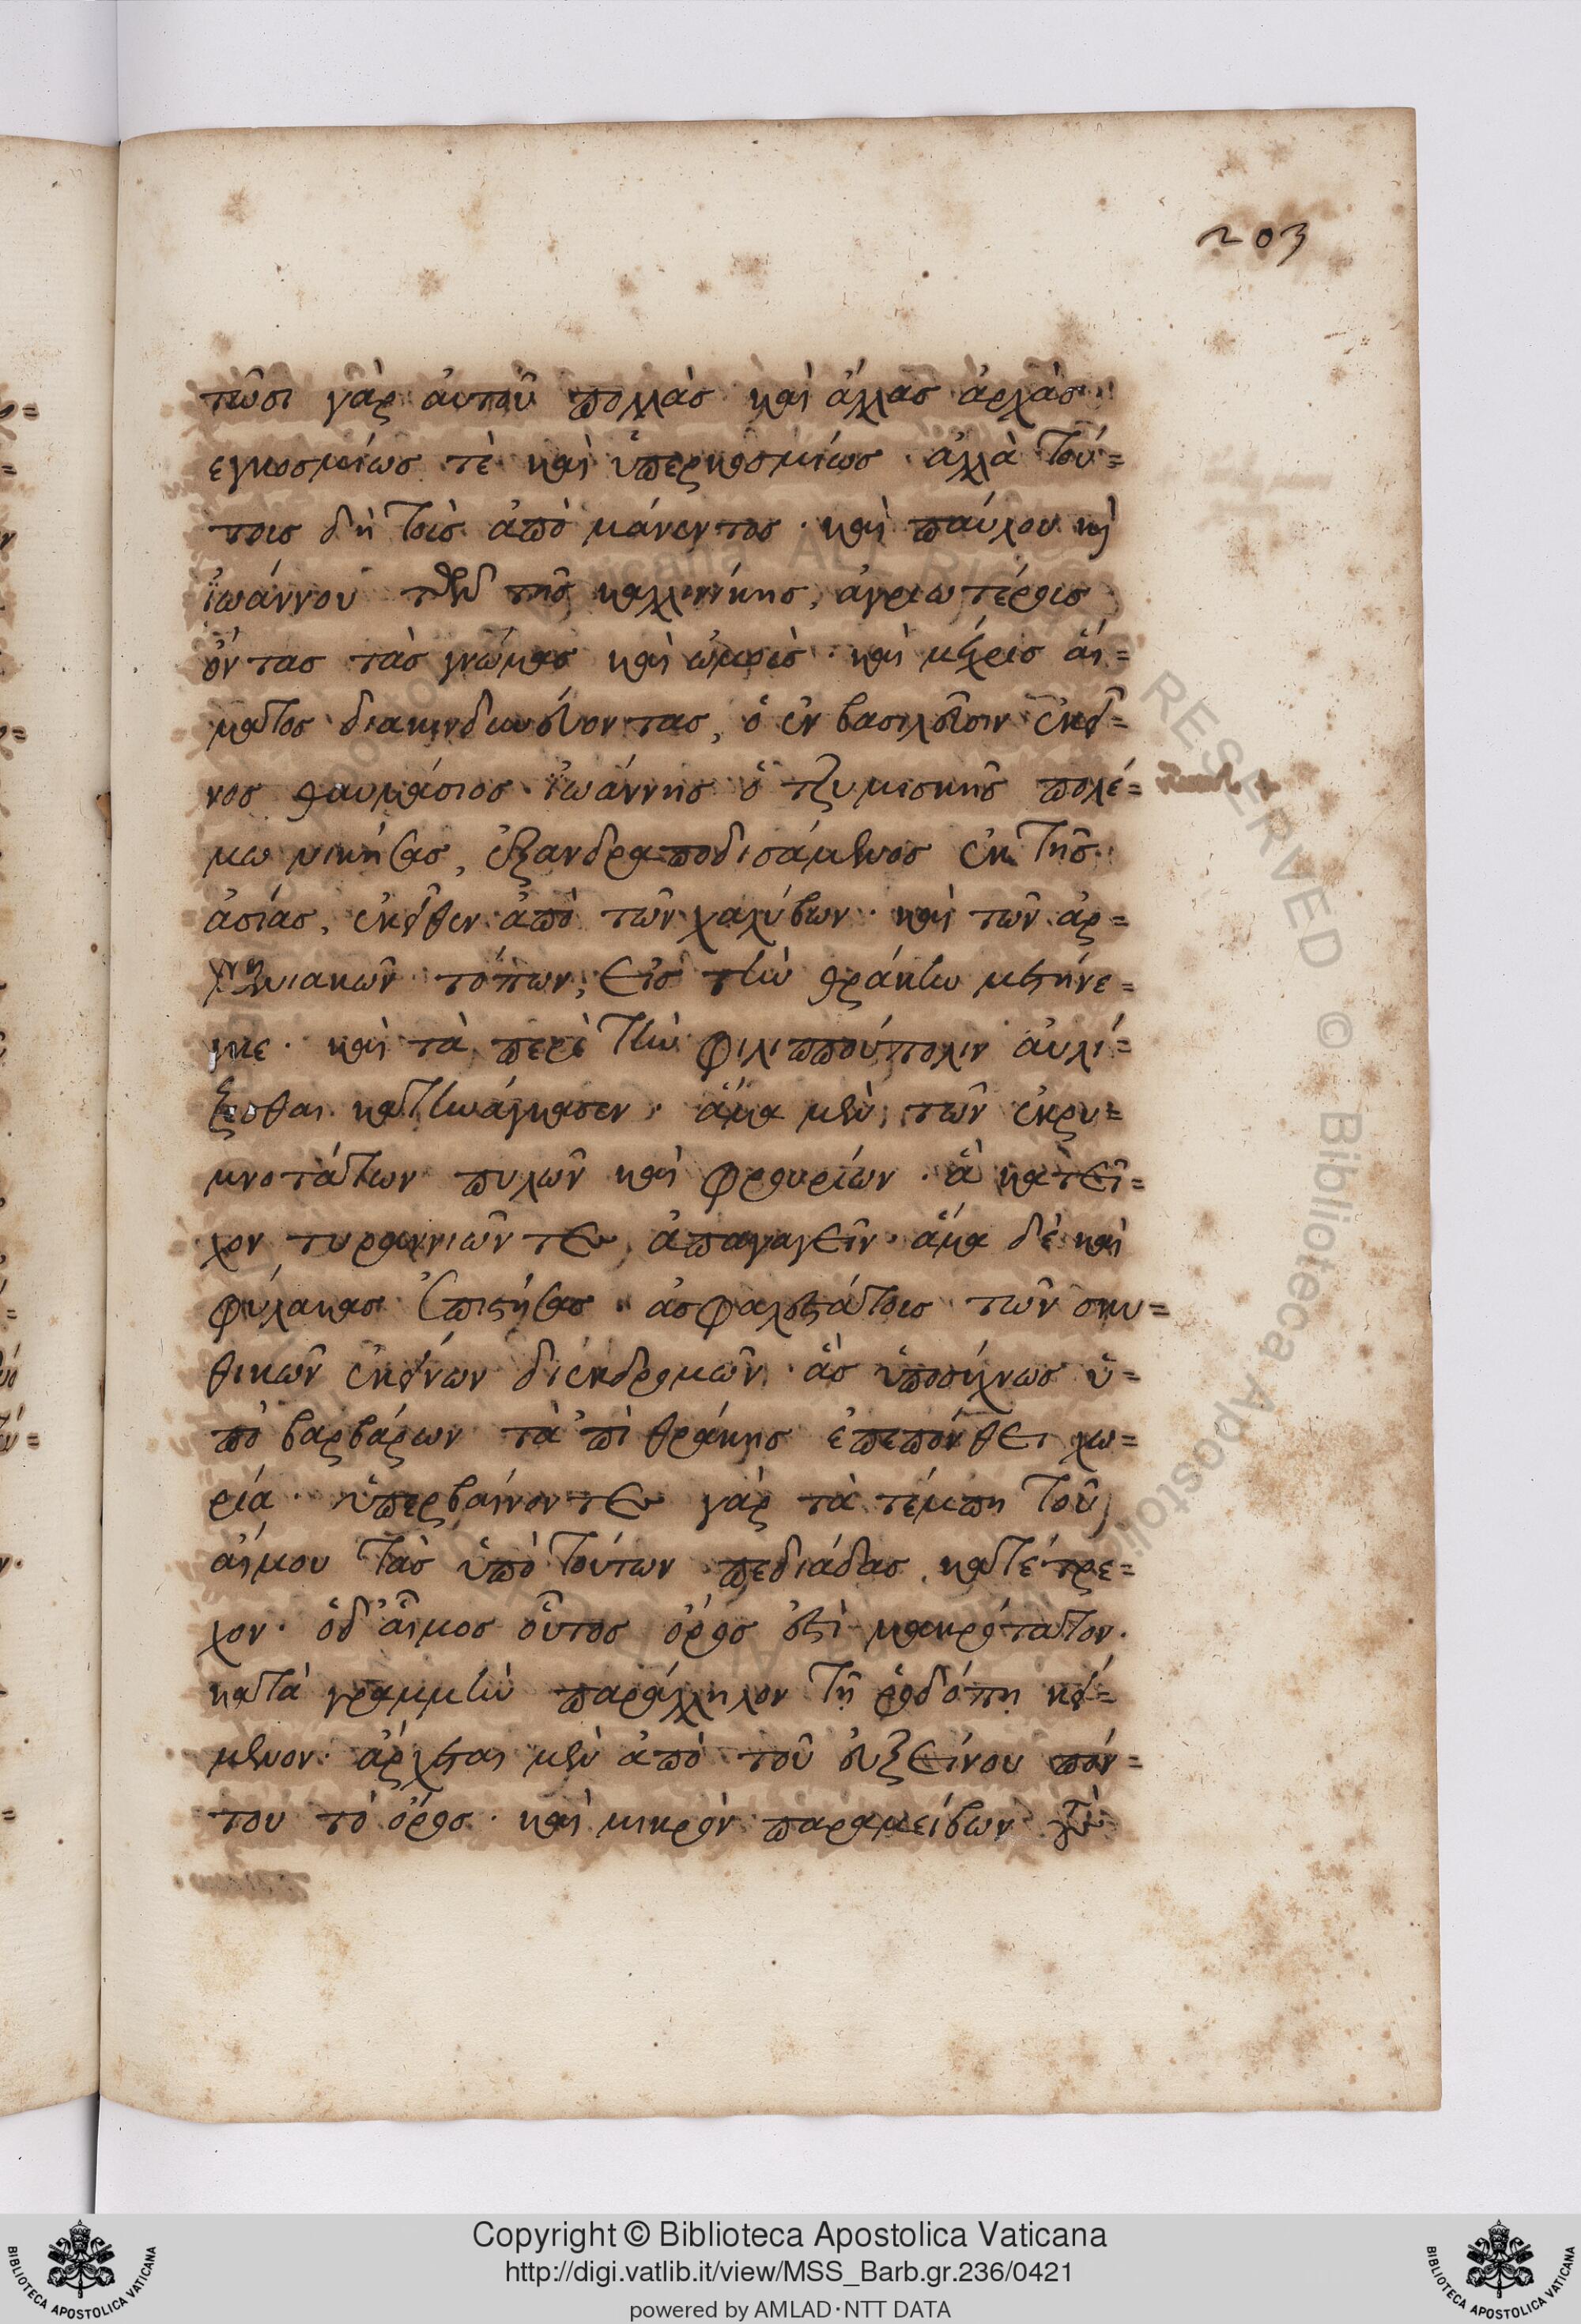 203
τῶσι γὰρ αὐτοῦ πολλὰς καὶ ἄλλας ἀρχὰς
εγκοσμίως τὲ καὶ ὑπερκοσμίως · ἀλλὰ τού=
τοις δὴ τοῖς ἀπὸ μάνεντος · καὶ παύλου κὶ
ἰωάννου τῶν τῆς καλλινίκης, ἀγριωτέροις
ὄντας τὰς γνώμας καὶ ὠμοὶς · καὶ μέχρις αἵ=
ματος διακινδυνεύοντας, ὁ ἐν βασιλεῦσιν ἐκεῖ=
νος θαυμάσιος ἰωάννης ὁ τζυμισκῆς πολέ=
μω νικήσας, ἐξανδραποδισάμενος ἐκ τῆς
ἀσίας, ἐκεῖθεν ἀπὸ τῶν χαλύβων · καὶ τῶν ἀρ=
μενιακῶν τόπων, εἰς τὴν θράκην μετήνε=
γκε · καὶ τὰ περὶ τὴν φιλιππούπολιν αὐλί=
ζεσθαι κατηνάγκασεν · ἅμα μὲν τῶν ἐκρυ=
μνοτάτων πυλῶν καὶ φρουρίων · ἃ κατεῖ=
χον τυραννιῶντες, ἀπαγαγεῖν · ἅμα δὲ καὶ
φύλακας ἐπιστήσας ἀσφαλεστάτοις τῶν σκυ=
θικῶν ἐκείνων διεκδρομῶν · ἃς ὑποσύχνως ὑ=
πὸ βαρβάρων τὰ ἐπὶ θράκης ἐπεπόνθει χω=
ρία · ὑπερβαίνοντες γὰρ τὰ τέμπη τοῦ
αἵμου τὰς ὑπὸ τούτων πεδιάδας κατέτρε=
χον · ὁδ' αἷμος οὗτος ὄρος ἐστὶ μακρότατον ·
κατὰ γραμμὴν παράλληλον τῇ ῥοδόπη κεί=
μενον · ἄρχεται μὲν ἀπὸ τοῦ εὐξείνου πόν=
του τὸ ὄρος · καὶ μικρὸν παραμείβων τὴν
Copyright © Biblioteca Apostolica Vaticana
http://digi.vatlib.it/view/MSS_Barb.gr.236/0421
powered by AMLAD·NTT DATA
BIBLIOTECA APOSTOLICA VATICANA
BIBLIOTECA APOSTOLICA VATICANA